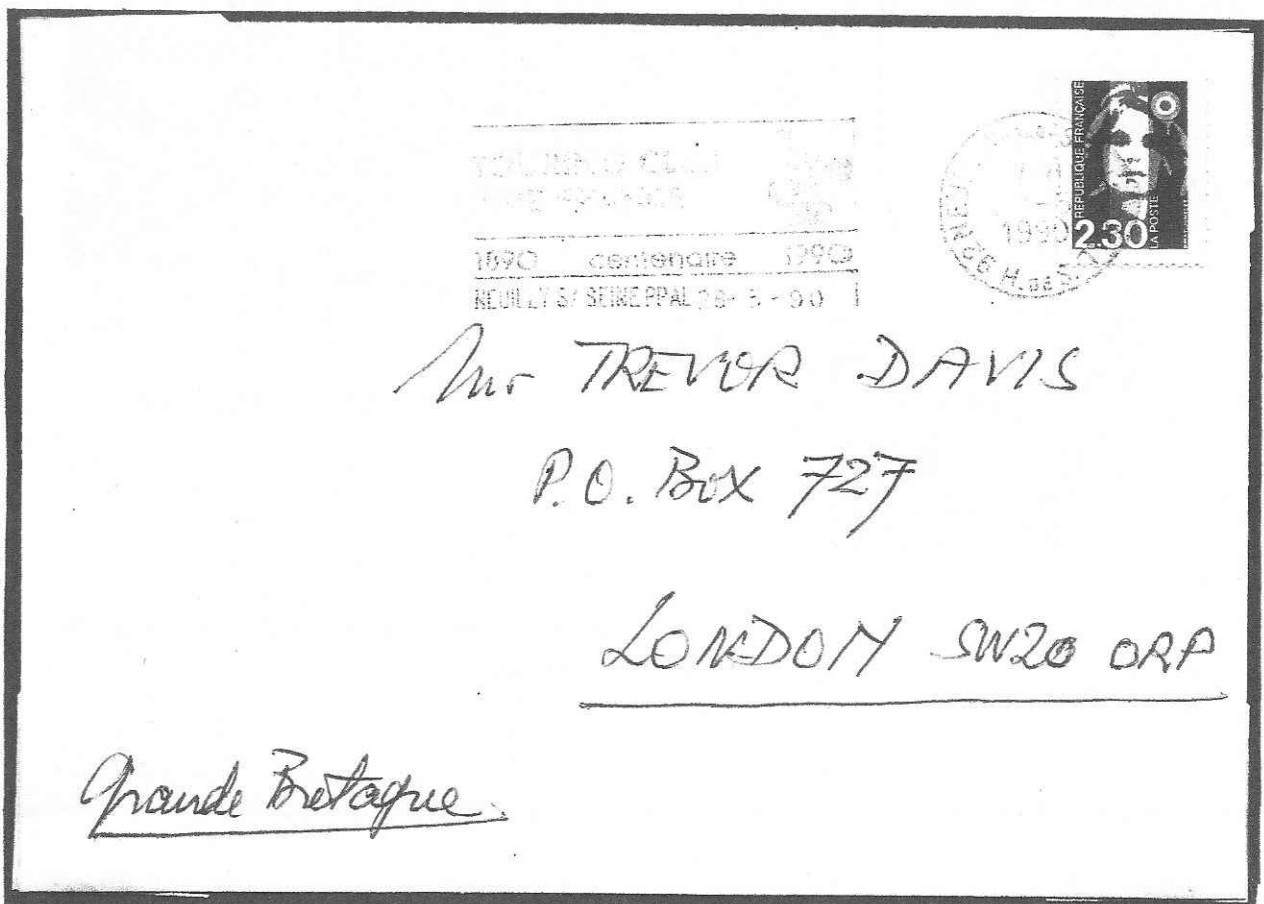 TOURING CLUB
1890 centenaire 1990
NEUILLY S/ SEINE PPAL 28- 5 - 90
1990
92 H. DE S.
REPUBLIQUE FRANÇAISE
2.30
LA POSTE
Mr TREVOR DAVIS
P.O. Box 727
LONDON SW20 0RP
Grande Bretagne.